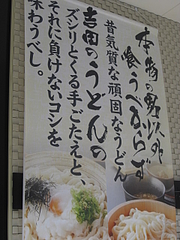 本物の男以外
食うべからず
昔気質な頑固なうどん
吉田のうどんの
ズシリとくる手ごたえと、
それに負けないコシを
味わうべし。